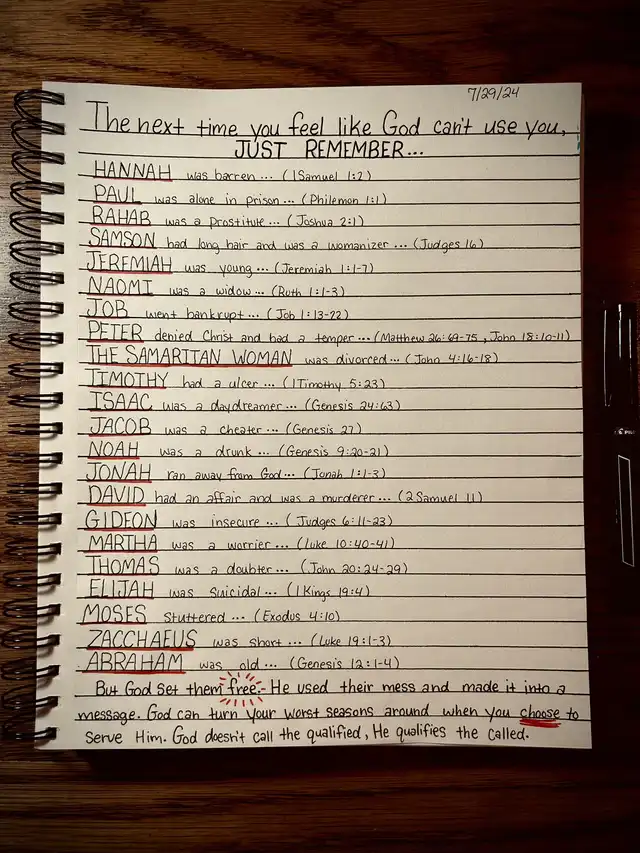 7/29/24
The next time you feel like God can't use you,
JUST REMEMBER...
HANNAH was barren... (1 Samuel 1:2)
PAUL was alone in prison... (Philemon 1:1)
RAHAB was a prostitute... (Joshua 2:1)
SAMSON had long hair and was a womanizer... (Judges 16)
JEREMIAH was young... (Jeremiah 1:1-7)
NAOMI was a widow... (Ruth 1:1-3)
JOB went bankrupt... (Job 1:13-22)
PETER denied Christ and had a temper... (Matthew 26:69-75, John 18:10-11)
THE SAMARITAN WOMAN was divorced... (John 4:16-18)
TIMOTHY had a ulcer... (1 Timothy 5:23)
ISAAC was a daydreamer... (Genesis 24:63)
JACOB was a cheater... (Genesis 27)
NOAH was a drunk... (Genesis 9:20-21)
JONAH ran away from God... (Jonah 1:1-3)
DAVID had an affair and was a murderer... (2 Samuel 11)
GIDEON was insecure... (Judges 6:11-23)
MARTHA was a worrier... (Luke 10:40-41)
THOMAS was a doubter... (John 20:24-29)
ELIJAH was suicidal... (1 Kings 19:4)
MOSES stuttered... (Exodus 4:10)
ZACCHAEUS was short... (Luke 19:1-3)
ABRAHAM was old... (Genesis 12:1-4)
But God set them free.- He used their mess and made it into a
message. God can turn your worst seasons around when you choose to
serve Him. God doesn't call the qualified, He qualifies the called.